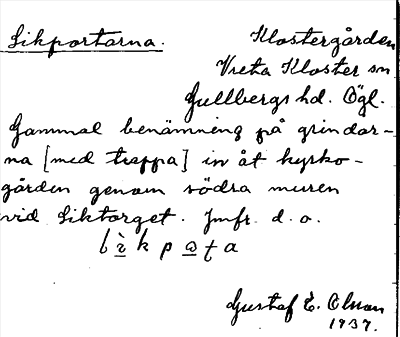 Likportarna.
Klostergården
Vreta Kloster sn
Gullbergs hd. Ögl.
Gammal benämning på grindar-
na [med trappa] in åt kyrko-
gården genom södra muren
vid Liktorget. Jmfr. d. o.
Gustaf E. Olsson
1937.